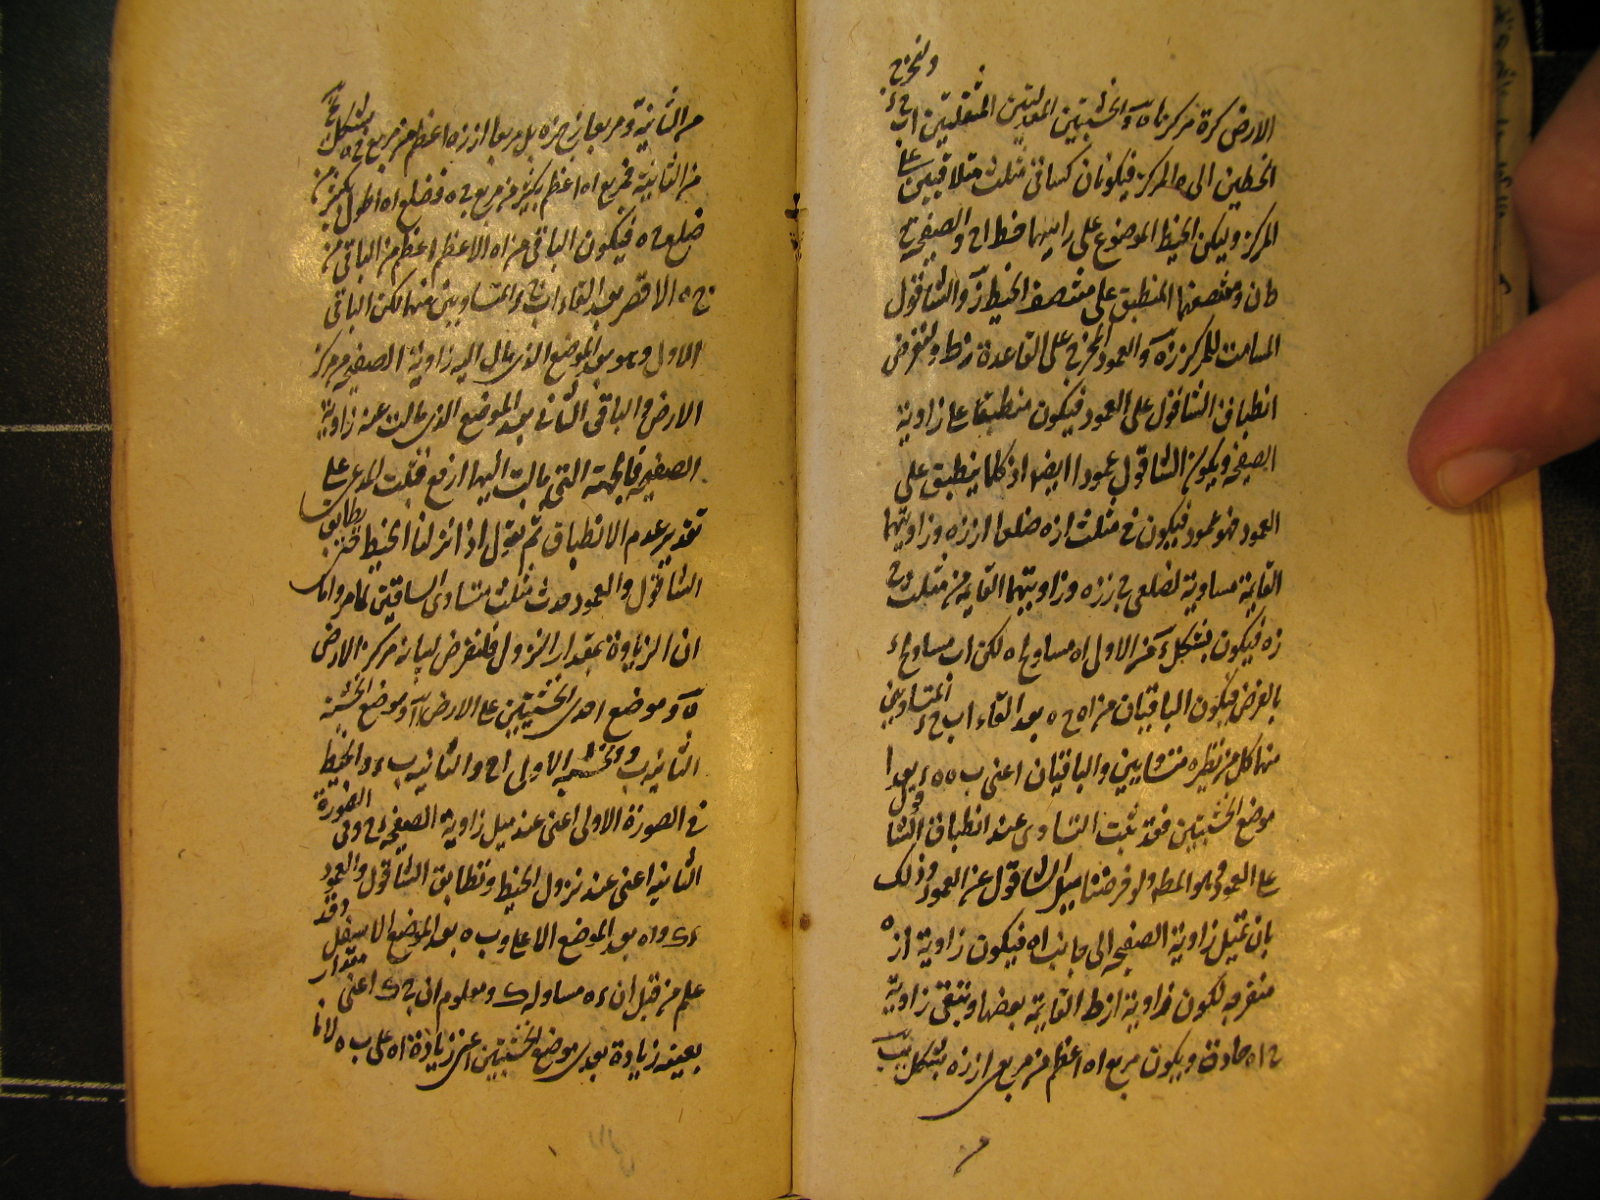 الارض كرة مركزها ه والخشبتين المعدلتين المثقلتين اب ح ء ونخرج
الخطين الى ه المركز فيكونان كساقى مثلث متلاقيين على
المركز وليكن الخيط الموضوع على راسيهما خط اح والصفيحة
ط ن ومنتصفها المنطبق على منتصف الخيط ز والشاقول
المسامت للمركز زه والعمود المخرج على القاعدة زط ولنفرض
انطباق الشاقول على العمود فيكون منطبقا على زاوية
الصفيحه ويكون الشاقول عمودا ايضا اذ كلما ينطبق على
العمود فهو عمود فيكون فى مثلث ازه ضلعا از زه وزاويتهما
القايمة مساوية لضلعى ح ز زه وزاويتهما القايمه من مثلث ح
زه فيكون بشكل ء من الاولى اه مساو ح ه لكن اب مساو ح ء
بالفرض فيكون الباقيان من اه ح ه بعد القاء اب ح ء المتساويين
منها كل من نظيره متساويين والباقيان اعنى ب ه ء ه بعدا
موضع الخشبتين فقد ثبت التساوى عند انطباق الشاقول
على العمود وهو المط ولو فرضنا ميل الشاقول عن العمود وذلك
بان تميل زاوية الصفيحه الى جانب اه فيكون زاوية ازه
منفرجه لكون زاوية ازط القايمة بعضها وتبقى زاوية
ح زه حادة ويكون مربع اه اعظم من مربعى از زه بشكل يب
من الثانية ومربعا ح ز زه بل مربعا از زه اعظم من مربع ح ه بشكل يج
من الثانية فمربع اه اعظم بكثير من مربع ح ه فضلع اه اطول بكثير من
ضلع ح ه فيكون الباقى من اه الاعظم اعظم من الباقى من
ح ه الاقصر بعد القاء اب ح ء المتساويين منهما لكن الباقى
الاول وهو بعد الموضع الذى مال اليه زاوية الصفيحه من مركز
الارض والباقى الثانى بعد الموضع الذى مالت عنه زاوية
الصفيحه فالجهة التى مالت اليها ارفع فثبت المدعى على
تقدير عدم الانطباق ثم نقول اذا انزلنا الخيط حتى يطابق
الشاقول والعمود حدث مثلث متساوى الساقين لما مر واما
ان الزيادة بمقدار النزول فلنفرض لبيانه مركز الارض
ه وموضع احدى الخشبتين على الارض ا وموضع الخشبة
الثانية ب والخشبه الاولى اح والثانيه ب ء والخيط
فى الصورة الاولى اعنى عند ميل زاوية الصفيحه ح ء وفى الصورة
الثانيه اعنى عند نزول الخيط وتطابق الشاقول والعمود
ء ك و اه بعد الموضع الاعلى و ب ه بعد الموضع الاسفل وقد
علم من قبل ان ء ه مساو ل ه ك ومعلوم ان ح ك اعنى مقدار
بعينه زيادة بعدى موضع الخشبتين اعنى زيادة اه على ب ه لانا